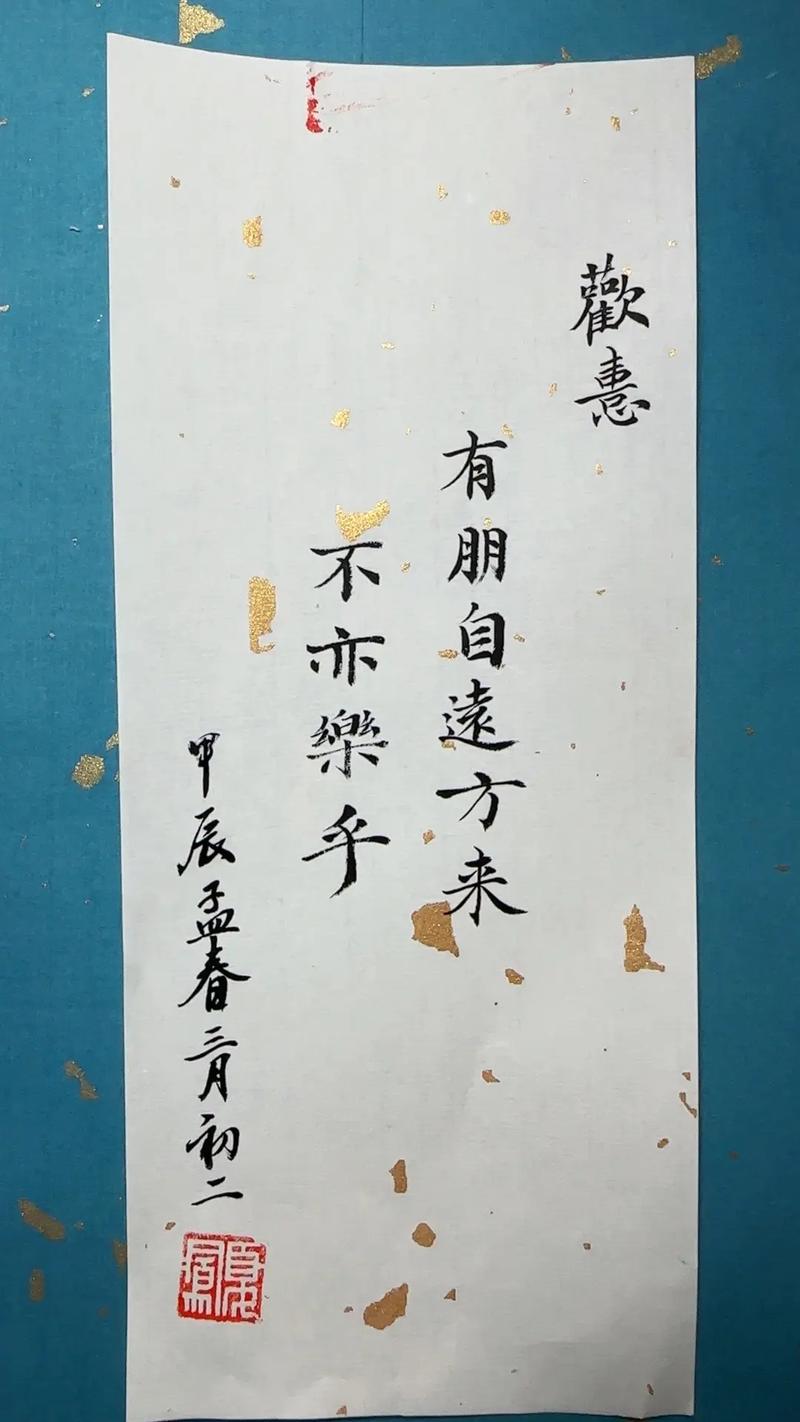 歡惠
有朋自遠方来
不亦樂乎
甲辰孟春三月初二